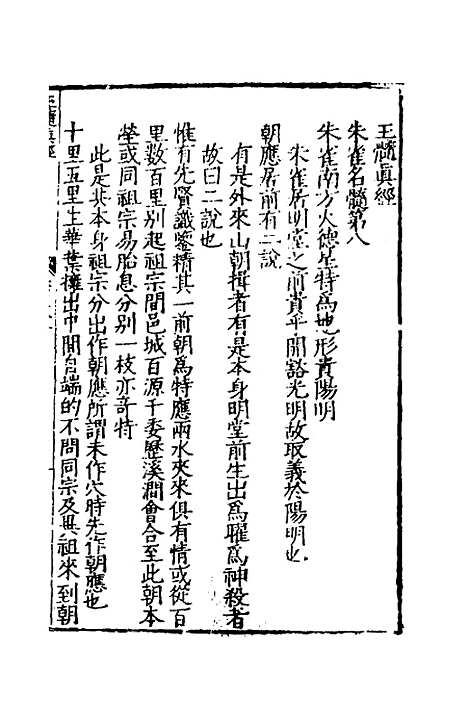 玉髓眞經
朱雀名髓第八
朱雀南方火德星特爲地形貴陽明
朱雀居明堂之前貴平開豁光明故取義於陽明也
朝應居前有二說
有是外來山朝揖者有是本身明堂前生出爲曜爲神殺者
故曰二說也
惟有先賢識鑒精其一前朝爲特應兩水夾來俱有情或從百
里數百里別起祖宗間邑城百源千委歷溪澗會合至此朝本
塋或同祖宗易胎息分別一枝亦奇特
此是共本身祖宗分出作朝應所謂未作穴時先作朝應也
十里五里生華葉擁出中間自端的不問同宗及異祖來到朝